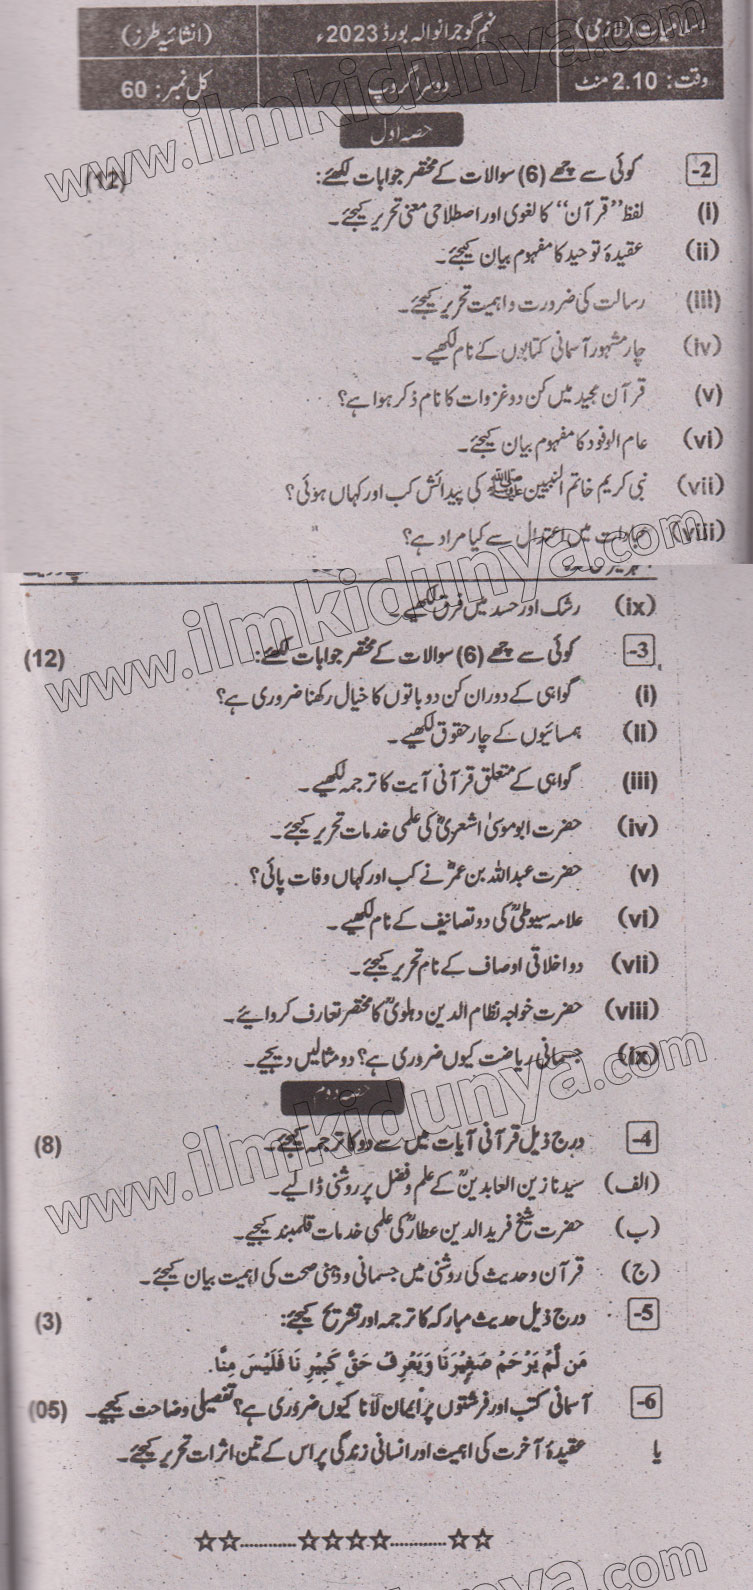 اسلامیات (لازمی) نہم گوجرانوالہ بورڈ 2023ء (انشائیہ طرز)
وقت: 2.10 منٹ دوسرا گروپ کل نمبر: 60
حصہ اول
2- کوئی سے چھے (6) سوالات کے مختصر جوابات لکھئے: (12)
(i) لفظ ’’قرآن‘‘ کا لغوی اور اصطلاحی معنی تحریر کیجئے۔
(ii) عقیدۂ توحید کا مفہوم بیان کیجئے۔
(iii) رسالت کی ضرورت و اہمیت تحریر کیجئے۔
(iv) چار مشہور آسمانی کتابوں کے نام لکھیے۔
(v) قرآن مجید میں کن دو غزوات کا نام ذکر ہوا ہے؟
(vi) عام الوفود کا مفہوم بیان کیجئے۔
(vii) نبی کریم خاتم النبیین ﷺ کی پیدائش کب اور کہاں ہوئی؟
(viii) عبادات میں اعتدال سے کیا مراد ہے؟
(ix) رشک اور حسد میں فرق لکھیے۔
3- کوئی سے چھے (6) سوالات کے مختصر جوابات لکھئے: (12)
(i) گواہی کے دوران کن دو باتوں کا خیال رکھنا ضروری ہے؟
(ii) ہمسائیوں کے چار حقوق لکھیے۔
(iii) گواہی کے متعلق قرآنی آیت کا ترجمہ لکھیے۔
(iv) حضرت ابو موسیٰ اشعریؓ کی علمی خدمات تحریر کیجئے۔
(v) حضرت عبداللہ بن عمرؓ نے کب اور کہاں وفات پائی؟
(vi) علامہ سیوطیؒ کی دو تصانیف کے نام لکھیے۔
(vii) دو اخلاقی اوصاف کے نام تحریر کیجئے۔
(viii) حضرت خواجہ نظام الدین دہلویؒ کا مختصر تعارف کروائیے۔
(ix) جسمانی ریاضت کیوں ضروری ہے؟ دو مثالیں دیجیے۔
حصہ دوم
4- درج ذیل قرآنی آیات میں سے دو کا ترجمہ کیجئے۔ (8)
(الف) سیدنا زین العابدینؒ کے علم و فضل پر روشنی ڈالیے۔
(ب) حضرت شیخ فرید الدین عطارؒ کی علمی خدمات قلمبند کیجیے۔
(ج) قرآن و حدیث کی روشنی میں جسمانی و ذہنی صحت کی اہمیت بیان کیجئے۔
5- درج ذیل حدیث مبارکہ کا ترجمہ اور تشریح کیجئے: (3)
مَن لَّمْ يَرْحَمْ صَغِيْرَنَا وَيَعْرِفْ حَقَّ كَبِيْرِنَا فَلَيْسَ مِنَّا.
6- آسمانی کتب اور فرشتوں پر ایمان لانا کیوں ضروری ہے؟ تفصیلی وضاحت کیجیے۔ (05)
یا عقیدۂ آخرت کی اہمیت اور انسانی زندگی پر اس کے تین اثرات تحریر کیجئے۔
www.ilmkidunya.com
www.ilmkidunya.com
www.ilmkidunya.com